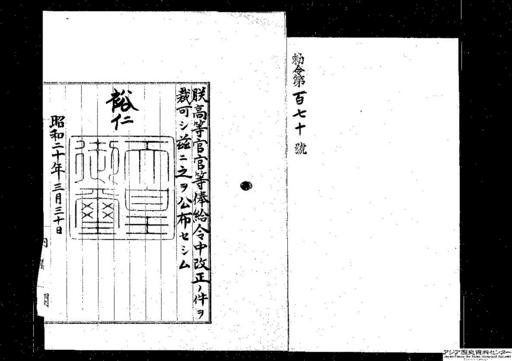 勅令第百七十號
朕高等官官等俸給令中改正ノ件ヲ
裁可シ茲ニ之ヲ公布セシム
裕仁
天皇御璽
昭和二十年三月三十日
内閣
アジア歴史資料センター